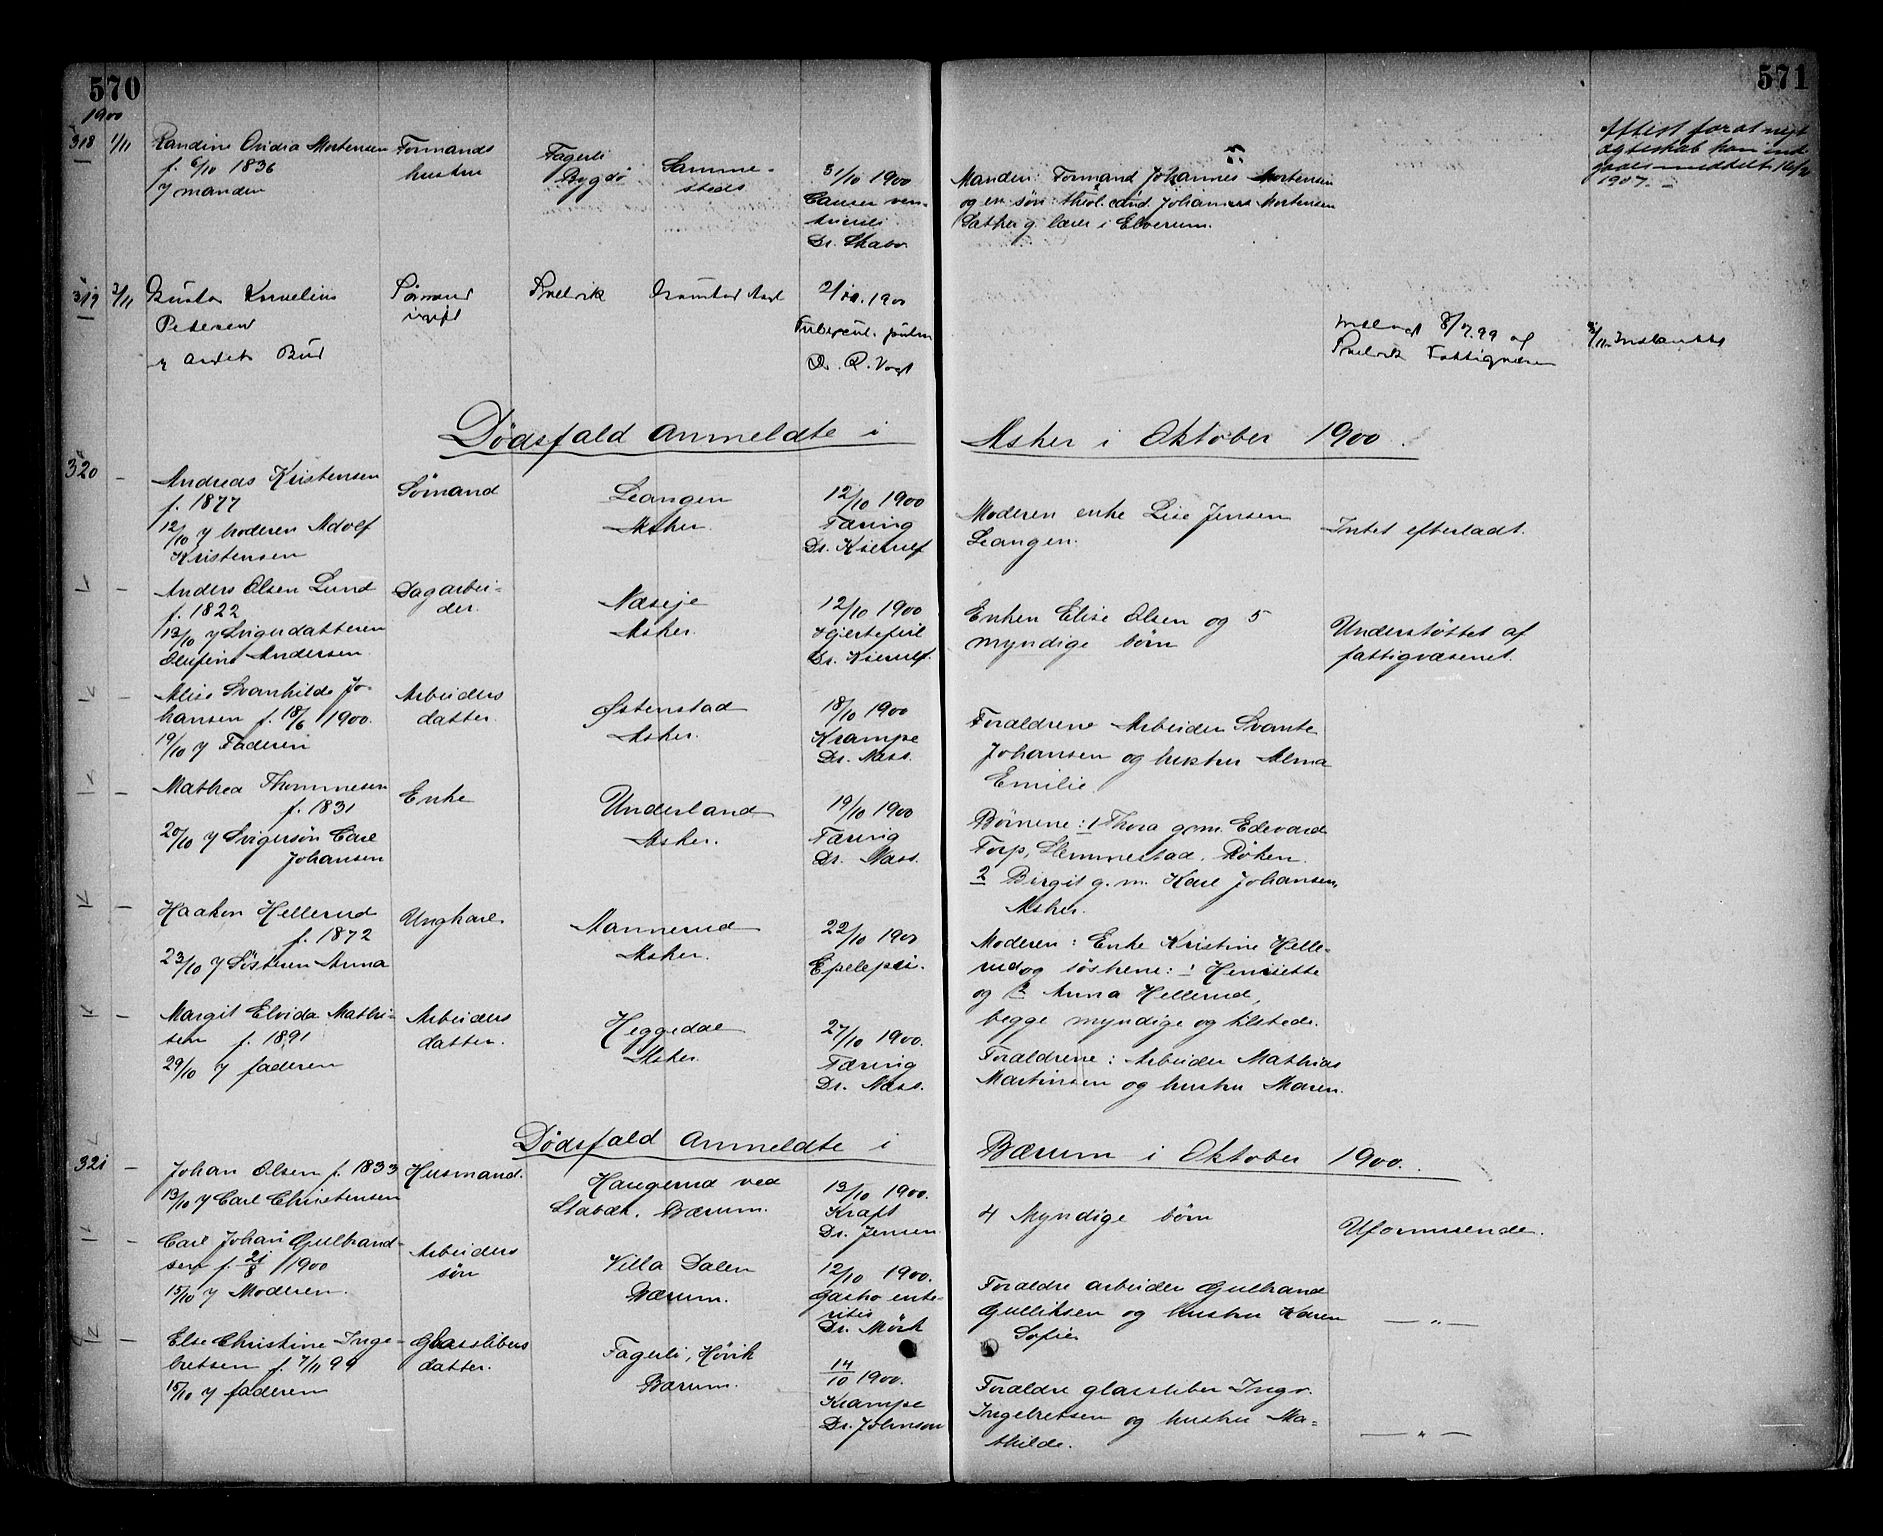 570
571
1900
318 1/11 Randine Ovidia Mortensen
f. 6/10 1836
y manden
Formands
hustru
Fagerli
Bygdø
Samme-
steds
31/10 1900
Cancer ven-
triculi
Dr. Skabo
Manden: Formand Johannes Mortensen
og en søn theol. cand. Johannes Mortensen
Datter g. lærer i Elverum.
Attest for at nyt
ægteskab kan ind
gaaes meddelt 16/2
1907. -
319 2/11 Gustav Kornelius
Petersen
y Bud
Sømand
ugift
Svelvik
2/11. 1900
Tubercul. pulm
Dr. R. Vogt
Indlagt 8/7.99 af
Svelvik Fattigvæsen
Dødsfald anmeldte i Asker i Oktober 1900.
320 - Andreas Kristensen
f. 1877
12/10 y broderen Adolf
Kristensen
Sømand
Leangen
Asker.
12/10 1900
Tæring
Dr. Kierulf
Moderen enke Lise Jensen
Leangen.
Intet efterladt.
- Anders Olsen Lund
f. 1822
12/10 y Svigerdatteren
Olufine Andersen.
Dagarbei-
der.
Næseje
Asker.
12/10 1900
Hjertefeil
Dr. Kierulf.
Enken Elise Olsen og 5
myndige børn
Understøttet af
fattigvæsenet.
- Alice Svanhilde Jo-
hansen f. 18/6 1900.
19/10 y Faderen
Arbeiders
datter.
Østenstad
Asker.
18/10 1900
Krampe
Dr. Næss.
Forældrene Arbeider Svante
Johansen og hustru Alma
Emilie.
- Mathea Thommesen
f. 1831
20/10 y Svigersøn Carl
Johansen
Enke
Underland
Asker.
19/10 1900
Tæring
Dr. Næss.
Børnene: 1 Thora g.m. Edevard
Torp, Slemmestad. Røken.
2 Birgit g. m. Karl Johansen,
Asker.
- Haakon Hellerud
f. 1872
23/10 y Søsteren Anna
Ungkarl
Mannerud
Asker.
22/10 1900
Epelepsi.
Moderen: Enke Kristine Helle-
rud og søskene: 1 Henriette
og 2 Anna Hellerud,
begge myndige og tilstede.
- Margit Elvida Mathi-
sen f. 1891
29/10 y faderen
Arbeiders
datter.
Heggedal
Asker.
27/10 1900.
Tæring
Dr. Næss.
Forældrene: Arbeider Mathias
Martinsen og hustru Maren.
Dødsfald anmeldte i Bærum i Oktober 1900.
321 - Johan Olsen f. 1833
13/10 y Carl Christensen
Husmand.
Haugerud ved
Stabæk. Bærum.
13/10 1900.
Kræft
Dr. Jensen
4 Myndige børn
Uformuende.
- Carl Johan Gulbrand-
sen f. 21/8 1900
15/10 y Moderen.
Arbeiders
søn
Villa Dalen
Bærum.
12/10 1900.
Gastro ente-
ritis
Dr. Mörk
Forældre arbeider Gulbrand
Gulliksen og hustru Karen
Sofie
- " -
- Else Christine Inge-
bretsen f. 7/11 99
15/10 y faderen
Glassslibers
datter.
Fagerli, Høvik
Bærum.
14/10 1900.
Krampe
Dr. Johnson
Forældre glassliber Ingv.
Ingebretsen og hustru Ma-
thilde.
- " -